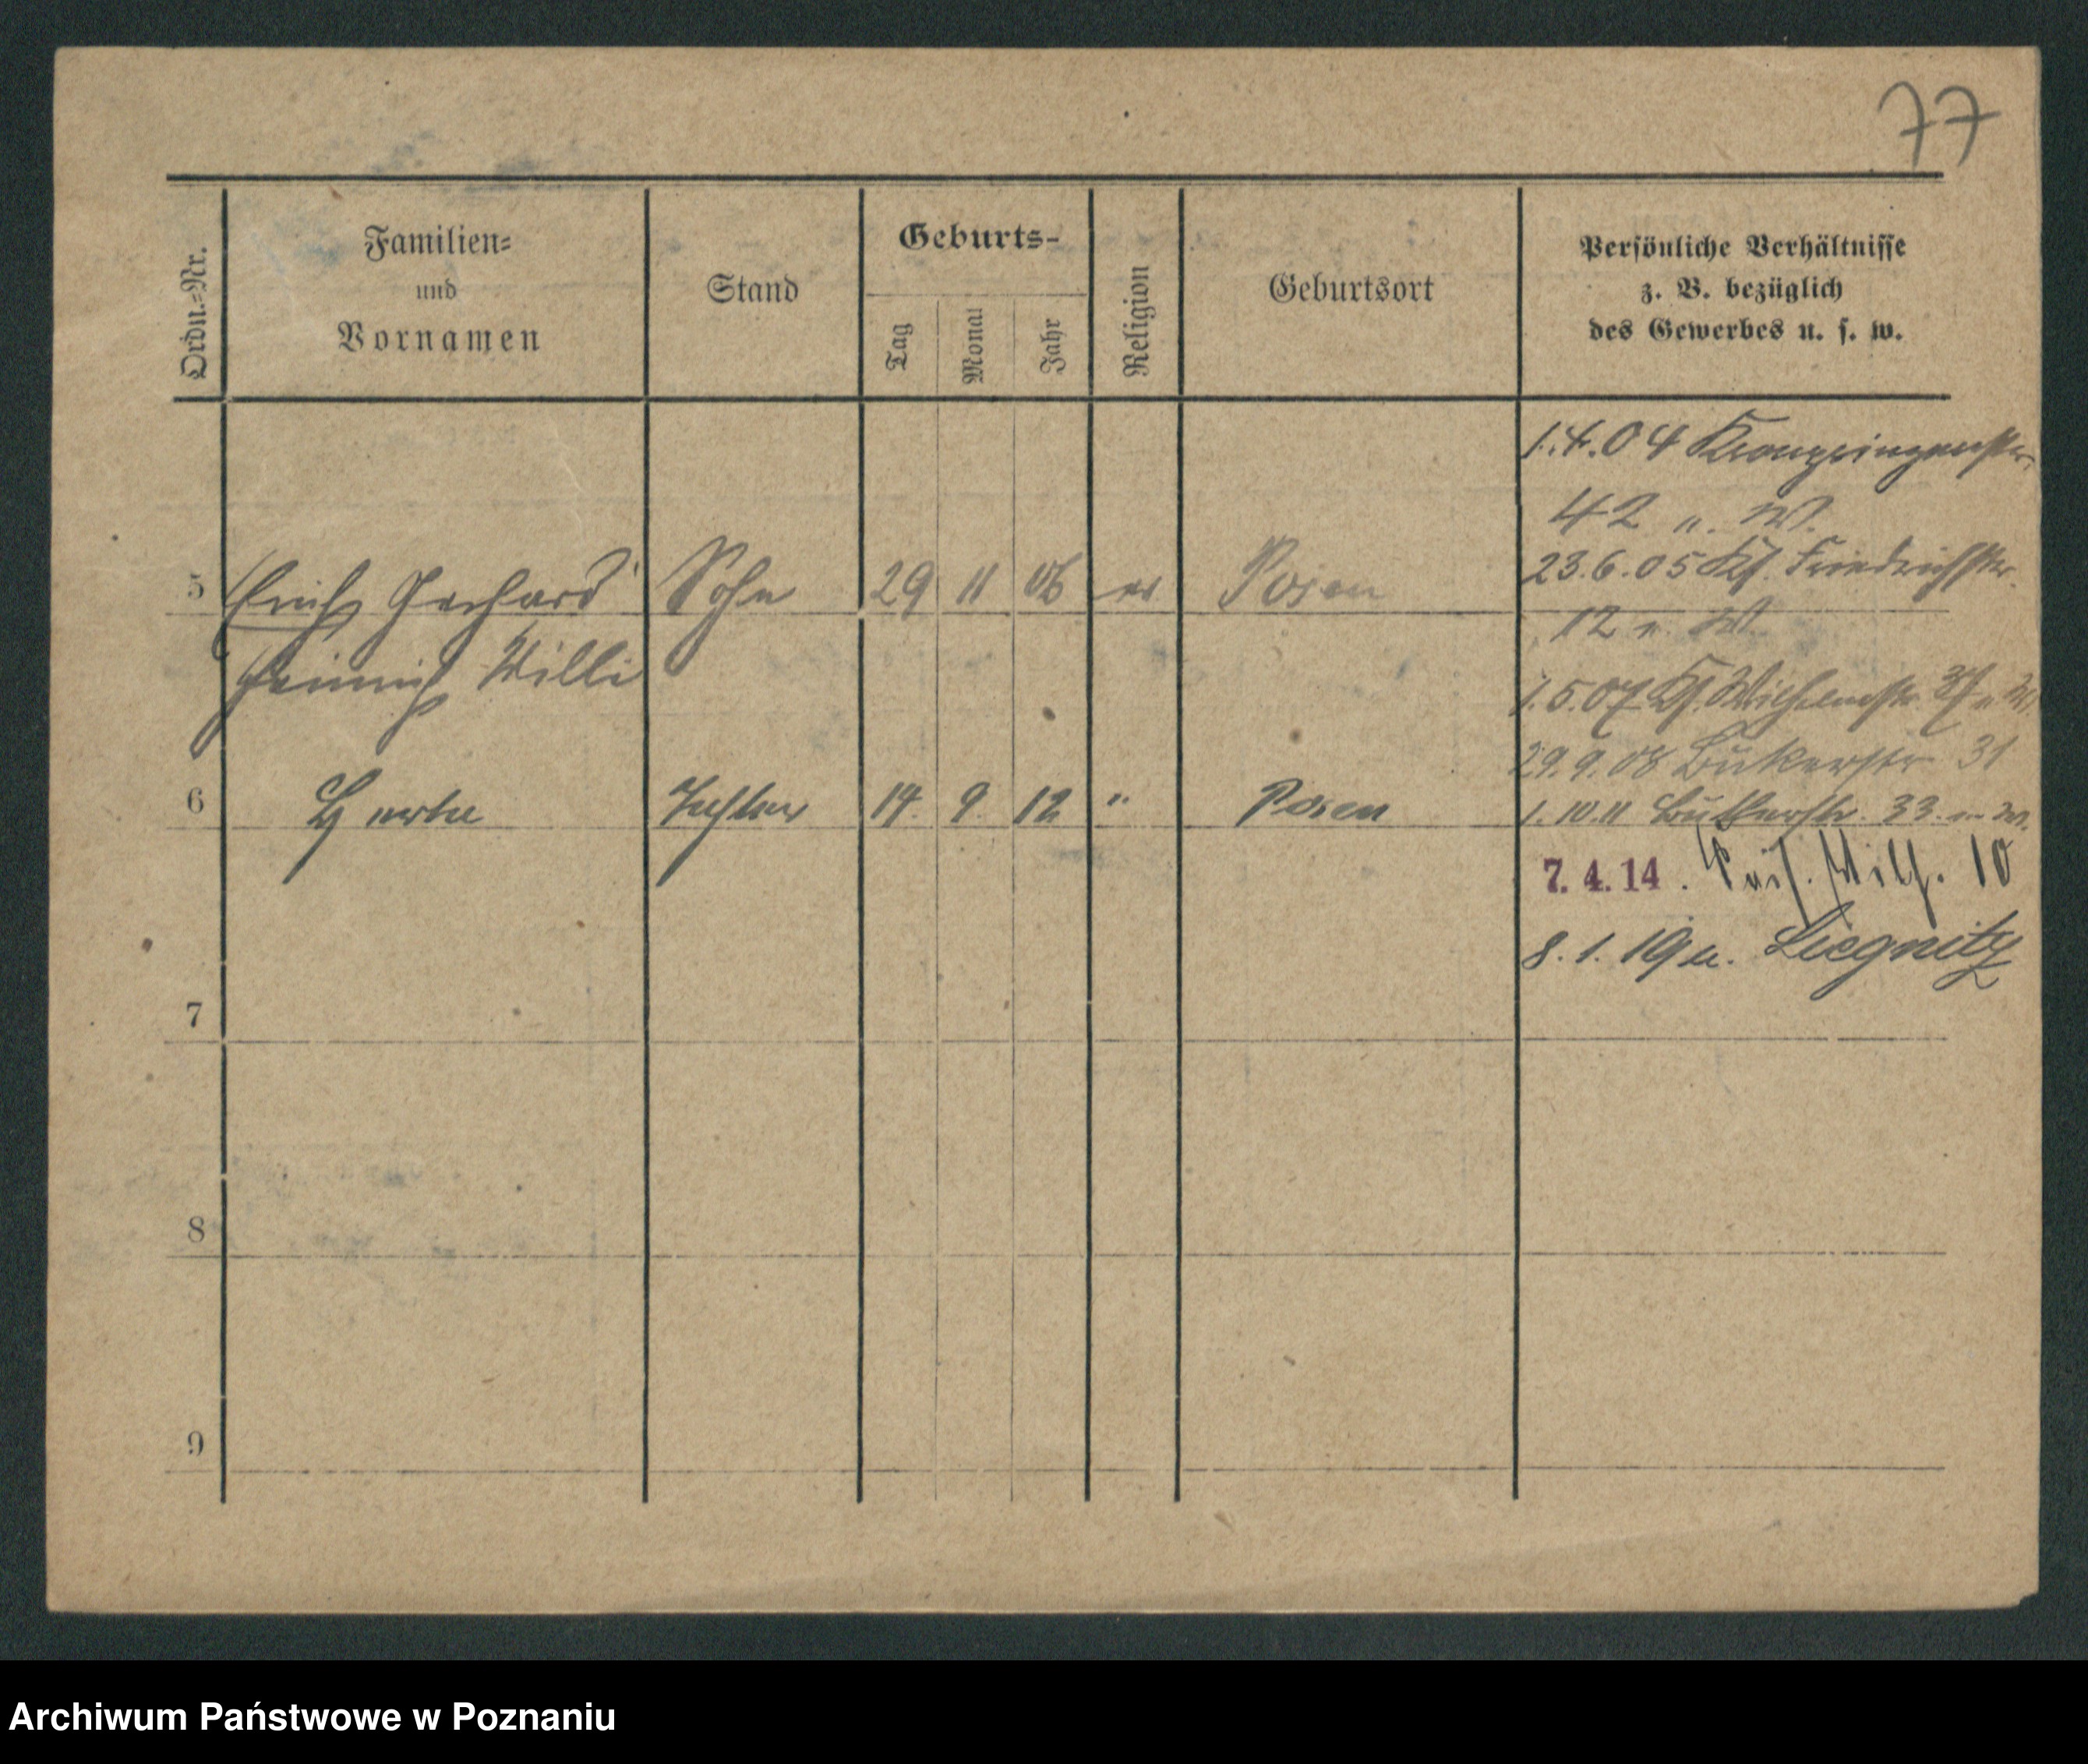 77
Ordn.=Nr.
Familien=
und
Vornamen
Stand
Geburts-
Tag
Monat
Jahr
Religion
Geburtsort
Persönliche Verhältnisse
z. B. bezüglich
des Gewerbes u. s. w.
1.4.04 Kronprinzenstr.
42 n. W.
5 Erich Gerhard Sohn 29 11 06 ev Posen
Heinrich Willi
23.6.05 Ks. Friedrichstr.
12 n. W.
1.5.07 Ks. Wilhelmstr. 37 n. W.
29.9.08 Bukerstr 31
6 Herta Tochter 14. 9. 12 " Posen
1.10.11 Bukerstr. 33. n. W.
7.4.14. Wilh. 10
8.1.19 n. Liegnitz
7
8
9
Archiwum Państwowe w Poznaniu